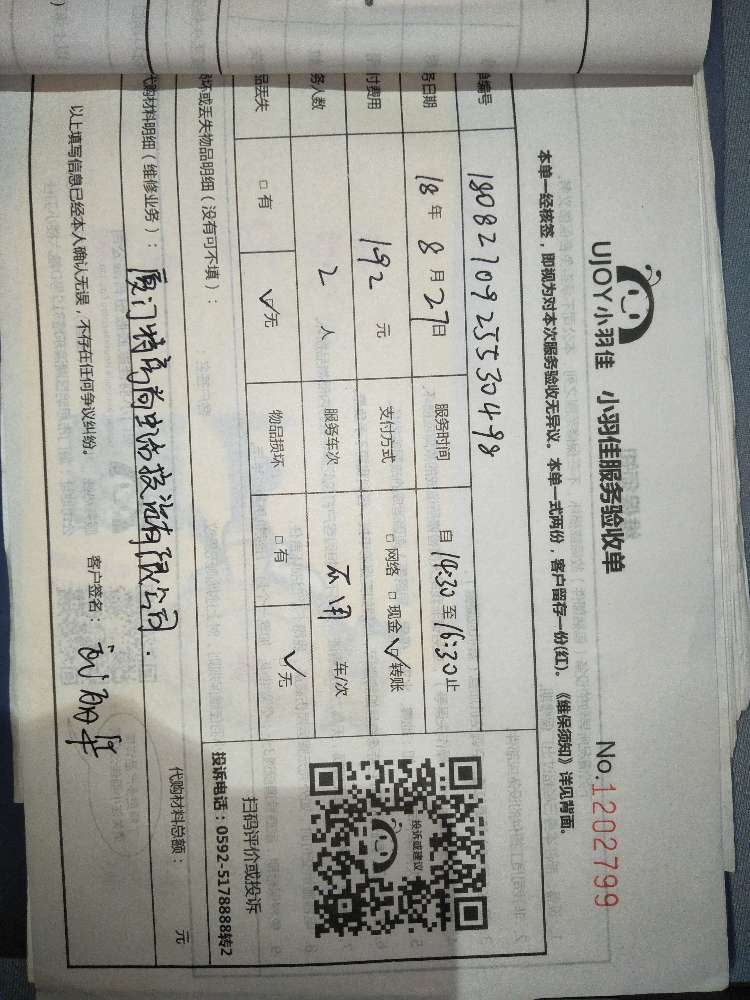 UJOY小羽佳 小羽佳服务验收单 No.1202799
本单一经核签，即视为对本次服务验收无异议。本单一式两份，客户留存一份(红)。《维保须知》详见背面。
单编号 180827092553049
务日期 18年8月27日 服务时间 自14:30至16:30止
付费用 192元 支付方式 □网络 □现金 ☑转账
务人数 2人 服务车次 不用 车/次
品丢失 □有 ☑无 物品损坏 □有 ☑无
投诉或建议
扫码评价或投诉
投诉电话：0592-5178888转2
损坏或丢失物品明细（没有可不填）：
代购材料明细（维修业务）： 代购材料总额： 元
有限公司.
以上填写信息已经本人确认无误，不存在任何争议纠纷。 客户签名：